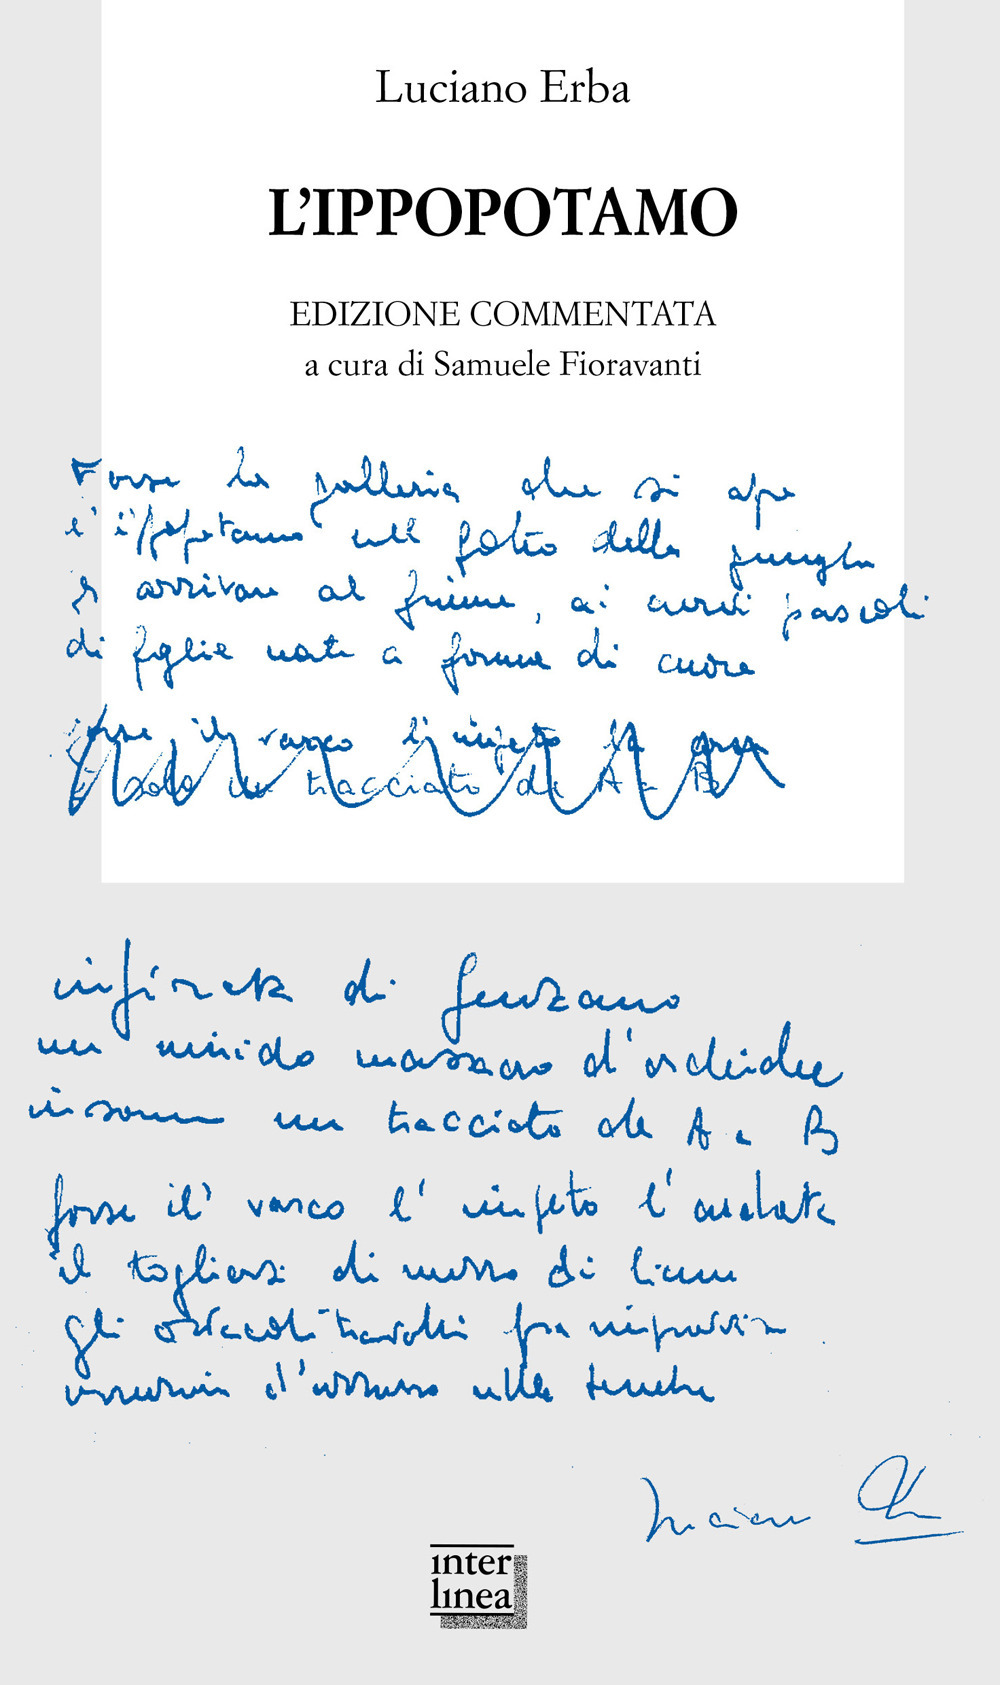 Luciano Erba
L'IPPOPOTAMO
EDIZIONE COMMENTATA
a cura di Samuele Fioravanti
Forse la galleria che si apre
l'ippopotamo nel folto della giungla
per arrivare al fiume, ai curvi pascoli
di foglie nate a forma di cuore
forse il varco l'impeto
è solo un tracciato da A a B
infiorata di Genzano
un umido massacro d'orchidee
insomma un tracciato da A a B
forse il varco l'impeto l'andata
il togliersi di mezzo di liane
gli ostacoli travolti
d'azzurro nelle tenebre
Luciano Erba
inter
linea